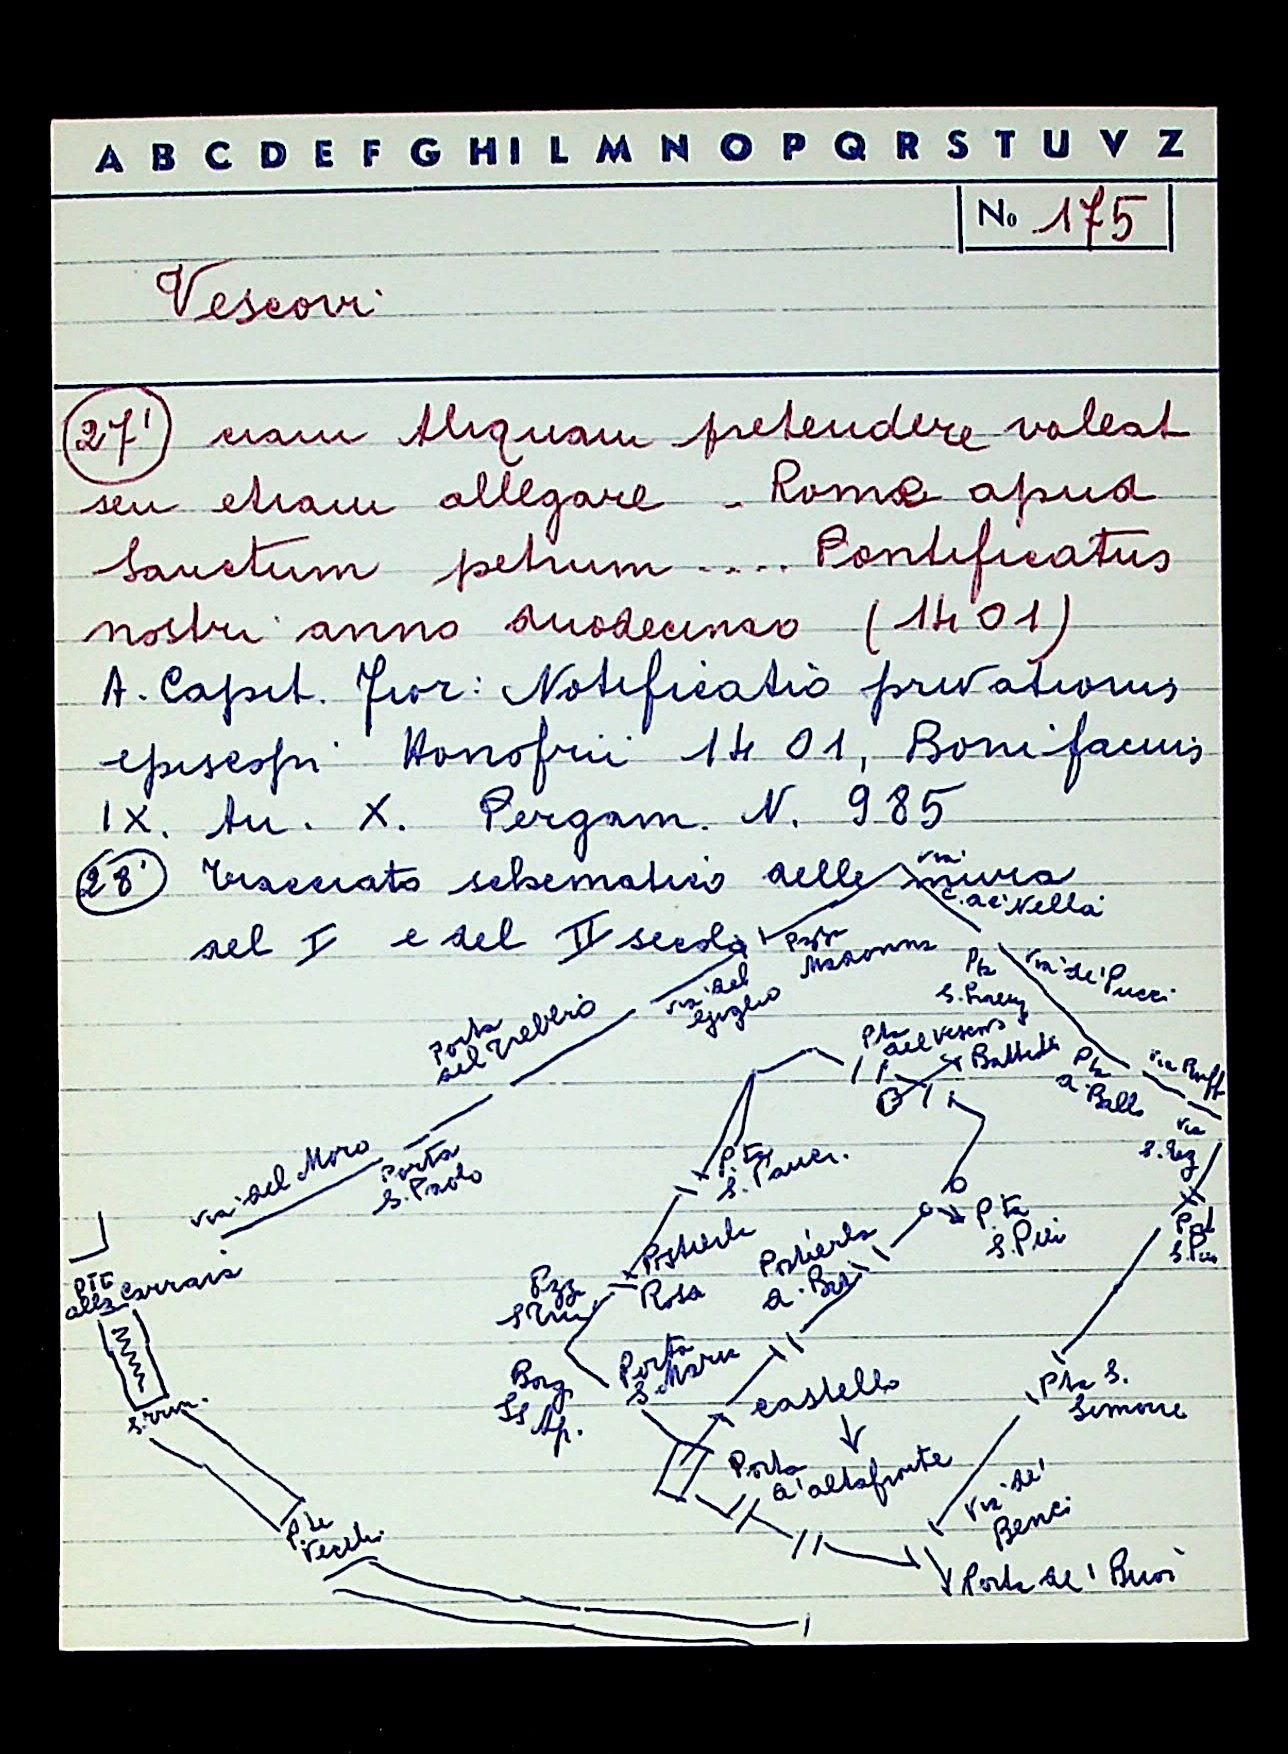 A B C D E F G H I L M N O P Q R S T U V Z
No 175
Vescovi
27' nam aliquam pretendere valeat
seu etiam allegare - Romae apud
Sanctum petrum .... Pontificatus
nostri anno duodecimo (1401)
A. Capit. Fior: Notificatio privationis
episcopi Honofrii 1401, Bonifacius
IX. An. X. Pergam. N. 985
28' Tracciato schematico delle mura
del I e del II secolo
via
C. de' Nella
Pzza
Madonna
via del
Giglio
Pta
S. Lorenz
via de' Pucci
Porta
del Trebbio
Pta
del Vescovo
Battist.
Pta
a. Balla
via Buff
via
S. Eg
via del Moro
Porta
S. Paolo
P.ta
S. Pancr.
P.ta
S. Pieri
S. Pier
Pte
alla Carraia
Postierla
Rosa
Postierla
a.
Pzza
S. Trin.
Borg.
SS. Ap.
Porta
S. Maria
castello
Porta
d'altafronte
Pta S.
Simone
S. Trin.
P.te
Vecchi.
via de'
Benci
Porta de' Buoi